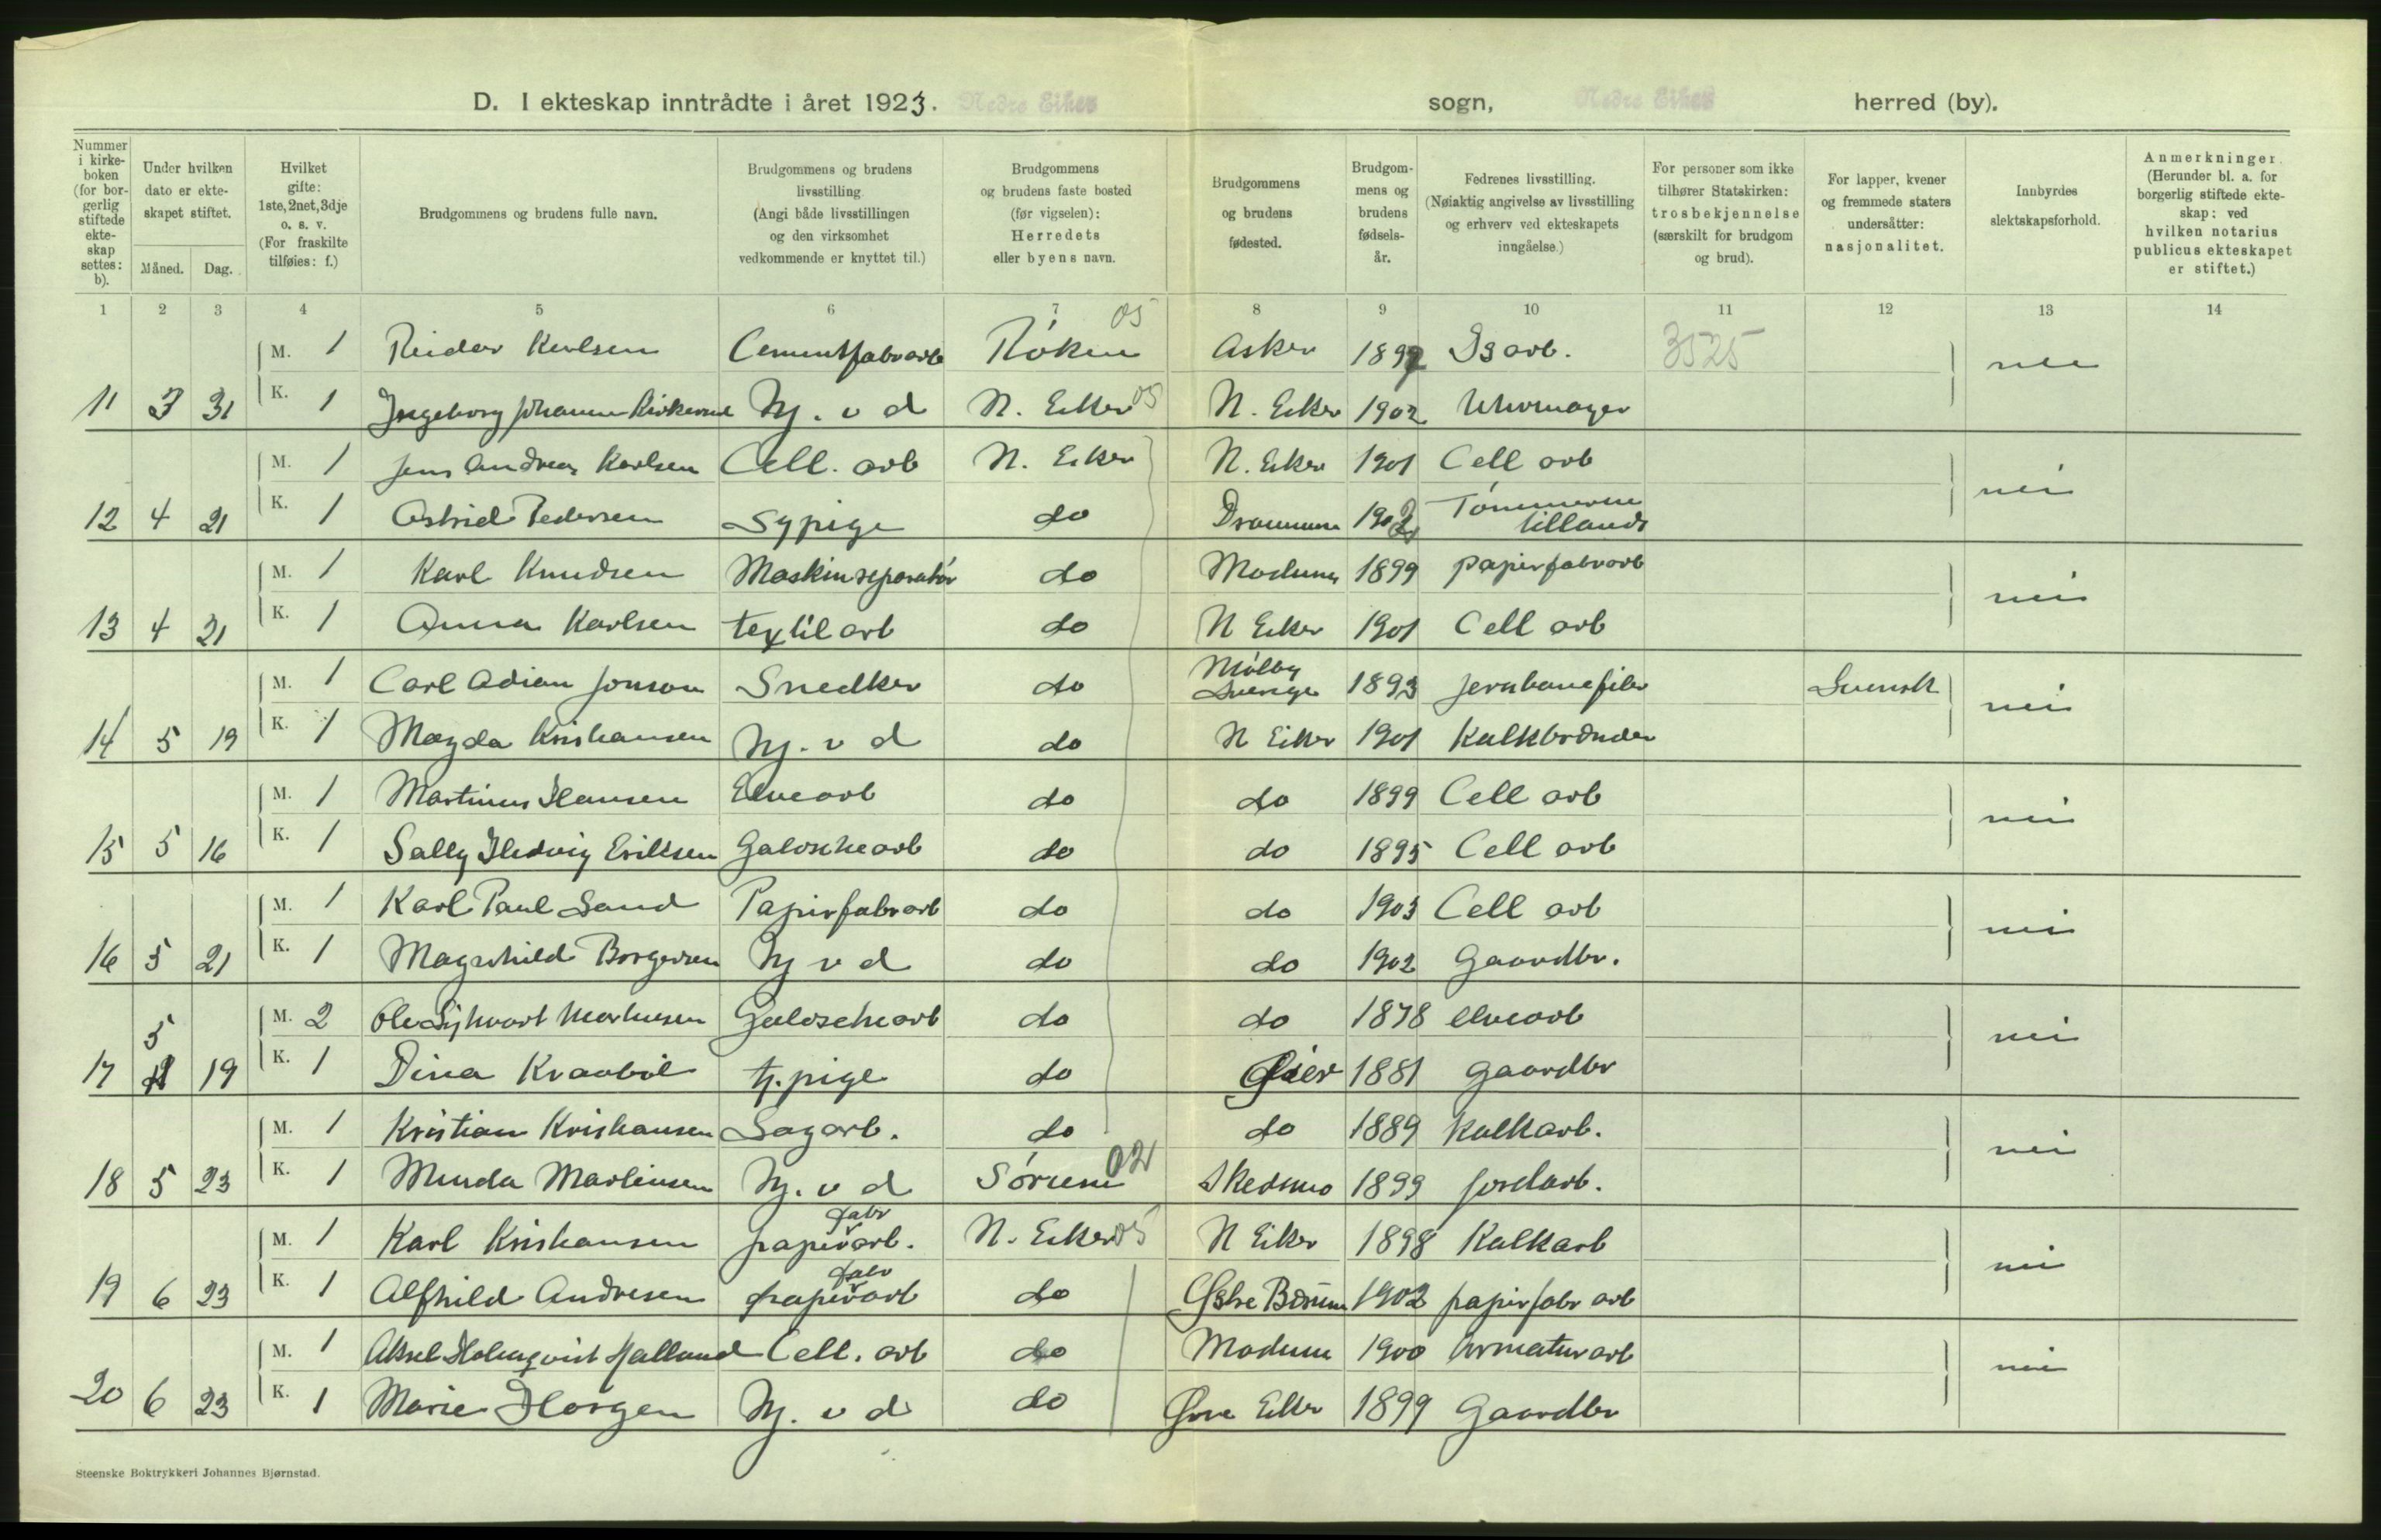 D. I ekteskap inntrådte i året 1923. Nedre Eiker sogn, Nedre Eiker herred (by).
Nummer i kirkeboken (for borgerlig stiftede ekteskap settes: b).
Under hvilken dato er ekteskapet stiftet.
Måned. Dag.
Hvilket gifte: 1ste, 2net, 3dje o. s. v. (For fraskilte tilføies: f.)
Brudgommens og brudens fulle navn.
Brudgommens og brudens livsstilling. (Angi både livsstillingen og den virksomhet vedkommende er knyttet til.)
Brudgommens og brudens faste bosted (før vigselen): Herredets eller byens navn.
Brudgommens og brudens fødested.
Brudgommens og brudens fødselsår.
Fedrenes livsstilling. (Nøiaktig angivelse av livsstilling og erhverv ved ekteskapets inngåelse.)
For personer som ikke tilhører Statskirken: trosbekjennelse (særskilt for brudgom og brud).
For lapper, kvener og fremmede staters undersåtter: nasjonalitet.
Innbyrdes slektskapsforhold.
Anmerkninger. (Herunder bl. a. for borgerlig stiftede ekteskap: ved hvilken notarius publicus ekteskapet er stiftet.)
1 2 3 4 5 6 7 8 9 10 11 12 13 14
M. 1 Reidar Karlsen Cementfabrarb Røken 05 Asker 1897 Isarb. 3525 nei
11 3 31 K. 1 Ingeborg Johanne hj. v d N. Eiker 05 N. Eiker 1902 Uhrmager
M. 1 Jens Andreas Karlsen Cell. arb N. Eiker N. Eiker 1901 Cell arb nei
12 4 21 K. 1 Astrid Pedersen Sypige do Drammen 1902 Tømmerm tillands
M. 1 Karl Knudsen Maskinreparatør do Modum 1899 papirfabrarb nei
13 4 21 K. 1 Anna Karlsen textilarb do N Eiker 1901 Cell arb
M. 1 Carl Adian Jonson Snedker do Mölby Sverige 1893 jernbane Svensk nei
14 5 19 K. 1 Magda Kristiansen hj. v d do N Eiker 1901 Kalkbrænder
M. 1 Martinus Hansen Elvearb do do 1899 Cell arb nei
15 5 16 K. 1 Sally Hedvig Eriksen Galoschearb do do 1895 Cell arb
M. 1 Karl Paul Sand Papirfabrarb do do 1903 Cell arb nei
16 5 21 K. 1 Magnhild Borgersen hj v d do do 1902 Gaardbr.
5 M. 2 Ole Galoschearb do do 1878 elvearb nei
17 19 K. 1 Dina Kraabøl tj. pige do Øier 1881 gaardbr
M. 1 Kristian Kristiansen Sagarb. do do 1889 Kalkarb. nei
18 5 23 K. 1 Minda Martinsen hj. v d Sørum 02 Skedsmo 1899 jordarb.
M. 1 Karl Kristiansen papirfabrarb. N. Eiker 05 N Eiker 1898 Kalkarb nei
19 6 23 K. 1 Alfhild Andresen papirfabrarb do Østre Bærum 1902 papirfabr arb
M. 1 Aksel Holmqvist Halland Cell. arb do Modum 1900 Armaturarb nei
20 6 23 K. 1 Marie Horgen hj. v d do Øvre Eiker 1899 Gaardbr
Steenske Boktrykkeri Johannes Bjørnstad.